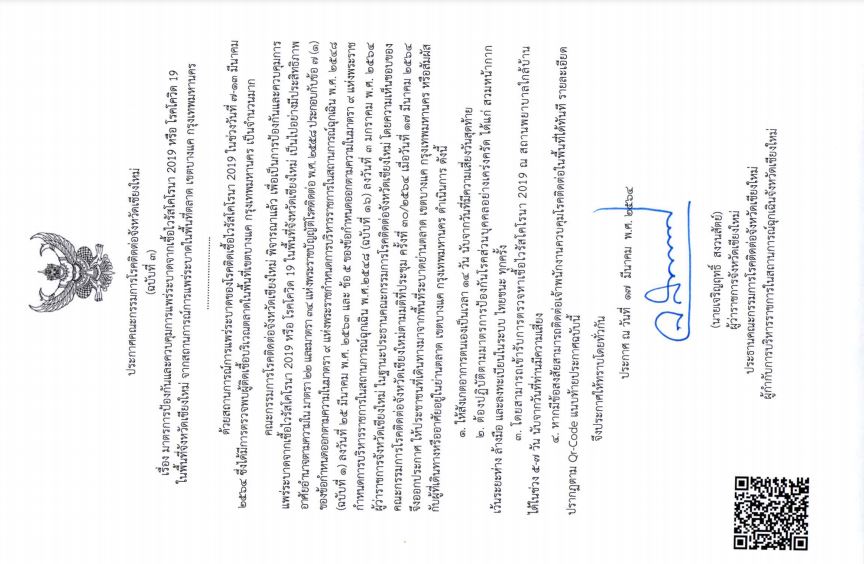 ประกาศคณะกรรมการโรคติดต่อจังหวัดเชียงใหม่
(ฉบับที่ ๓)
เรื่อง มาตรการป้องกันและควบคุมการแพร่ระบาดจากเชื้อไวรัสโคโรนา 2019 หรือ โรคโควิด 19
ในพื้นที่จังหวัดเชียงใหม่ จากสถานการณ์การแพร่ระบาดในพื้นที่ตลาด เขตบางแค กรุงเทพมหานคร
ด้วยสถานการณ์การแพร่ระบาดของโรคติดเชื้อไวรัสโคโรนา 2019 ในช่วงวันที่ ๗-๑๓ มีนาคม
๒๕๖๔ ซึ่งได้มีการตรวจพบผู้ติดเชื้อบริเวณตลาดในพื้นที่เขตบางแค กรุงเทพมหานคร เป็นจำนวนมาก
คณะกรรมการโรคติดต่อจังหวัดเชียงใหม่ พิจารณาแล้ว เพื่อเป็นการป้องกันและควบคุมการ
แพร่ระบาดจากเชื้อไวรัสโคโรนา 2019 หรือ โรคโควิด 19 ในพื้นที่จังหวัดเชียงใหม่ เป็นไปอย่างมีประสิทธิภาพ
อาศัยอำนาจตามความใน มาตรา ๒๒ และมาตรา ๓๔ แห่งพระราชบัญญัติโรคติดต่อ พ.ศ. ๒๕๕๘ ประกอบกับข้อ ๗ (๑)
ของข้อกำหนดออกตามความในมาตรา ๙ แห่งพระราชกำหนดการบริหารราชการในสถานการณ์ฉุกเฉิน พ.ศ. ๒๕๔๘
(ฉบับที่ ๑) ลงวันที่ ๒๕ มีนาคม พ.ศ. ๒๕๖๓ และ ข้อ ๕ ของข้อกำหนดออกตามความในมาตรา ๙ แห่งพระราช
กำหนดการบริหารราชการในสถานการณ์ฉุกเฉิน พ.ศ.๒๕๔๘ (ฉบับที่ ๑๖) ลงวันที่ ๓ มกราคม พ.ศ. ๒๕๖๔
ผู้ว่าราชการจังหวัดเชียงใหม่ ในฐานะประธานคณะกรรมการโรคติดต่อจังหวัดเชียงใหม่ โดยความเห็นชอบของ
คณะกรรมการโรคติดต่อจังหวัดเชียงใหม่ตามมติที่ประชุม ครั้งที่ ๓๐/๒๕๖๔ เมื่อวันที่ ๑๗ มีนาคม ๒๕๖๔
จึงออกประกาศ ให้ประชาชนที่เดินทางมาจากพื้นที่ระบาดย่านตลาด เขตบางแค กรุงเทพมหานคร หรือสัมผัส
กับผู้ที่เดินทางหรืออาศัยอยู่ในย่านตลาด เขตบางแค กรุงเทพมหานคร ดำเนินการ ดังนี้
๑. ให้สังเกตอาการตนเองเป็นเวลา ๑๔ วัน นับจากวันที่มีความเสี่ยงวันสุดท้าย
๒. ต้องปฏิบัติตามมาตรการป้องกันโรคส่วนบุคคลอย่างเคร่งครัด ได้แก่ สวมหน้ากาก
เว้นระยะห่าง ล้างมือ และลงทะเบียนในระบบ ไทยชนะ ทุกครั้ง
๓. โดยสามารถเข้ารับการตรวจหาเชื้อไวรัสโคโรนา 2019 ณ สถานพยาบาลใกล้บ้าน
ได้ในช่วง ๕-๗ วัน นับจากวันที่ท่านมีความเสี่ยง
๔. หากมีข้อสงสัยสามารถติดต่อเจ้าพนักงานควบคุมโรคติดต่อในพื้นที่ได้ทันที รายละเอียด
ปรากฏตาม Qr-Code แนบท้ายประกาศฉบับนี้
จึงประกาศให้ทราบโดยทั่วกัน
ประกาศ ณ วันที่ ๑๗ มีนาคม พ.ศ. ๒๕๖๔
(นายเจริญฤทธิ์ สงวนสัตย์)
ผู้ว่าราชการจังหวัดเชียงใหม่
ประธานคณะกรรมการโรคติดต่อจังหวัดเชียงใหม่
ผู้กำกับการบริหารราชการในสถานการณ์ฉุกเฉินจังหวัดเชียงใหม่